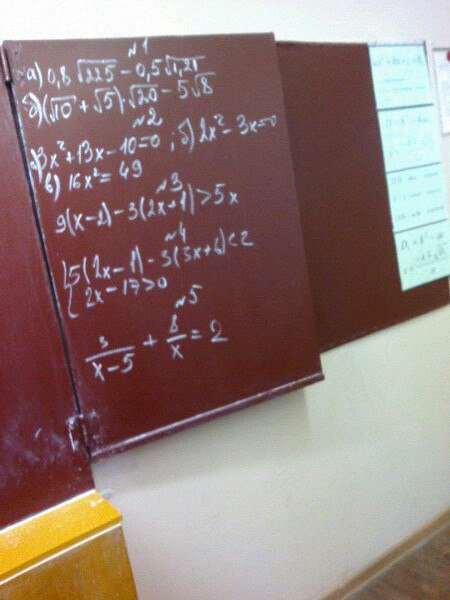 №1
а) 0,8√225 − 0,5√1,21
б) (√10 + √5)·√20 − 5√8
№2
а) 3x² + 13x − 10 = 0 ; б) 2x² − 3x = 0
в) 16x² = 49
№3
9(x−2) − 3(2x+1) > 5x
№4
{5(2x−1) − 3(3x+6) < 2
2x − 17 > 0
№5
3/(x−5) + 8/x = 2